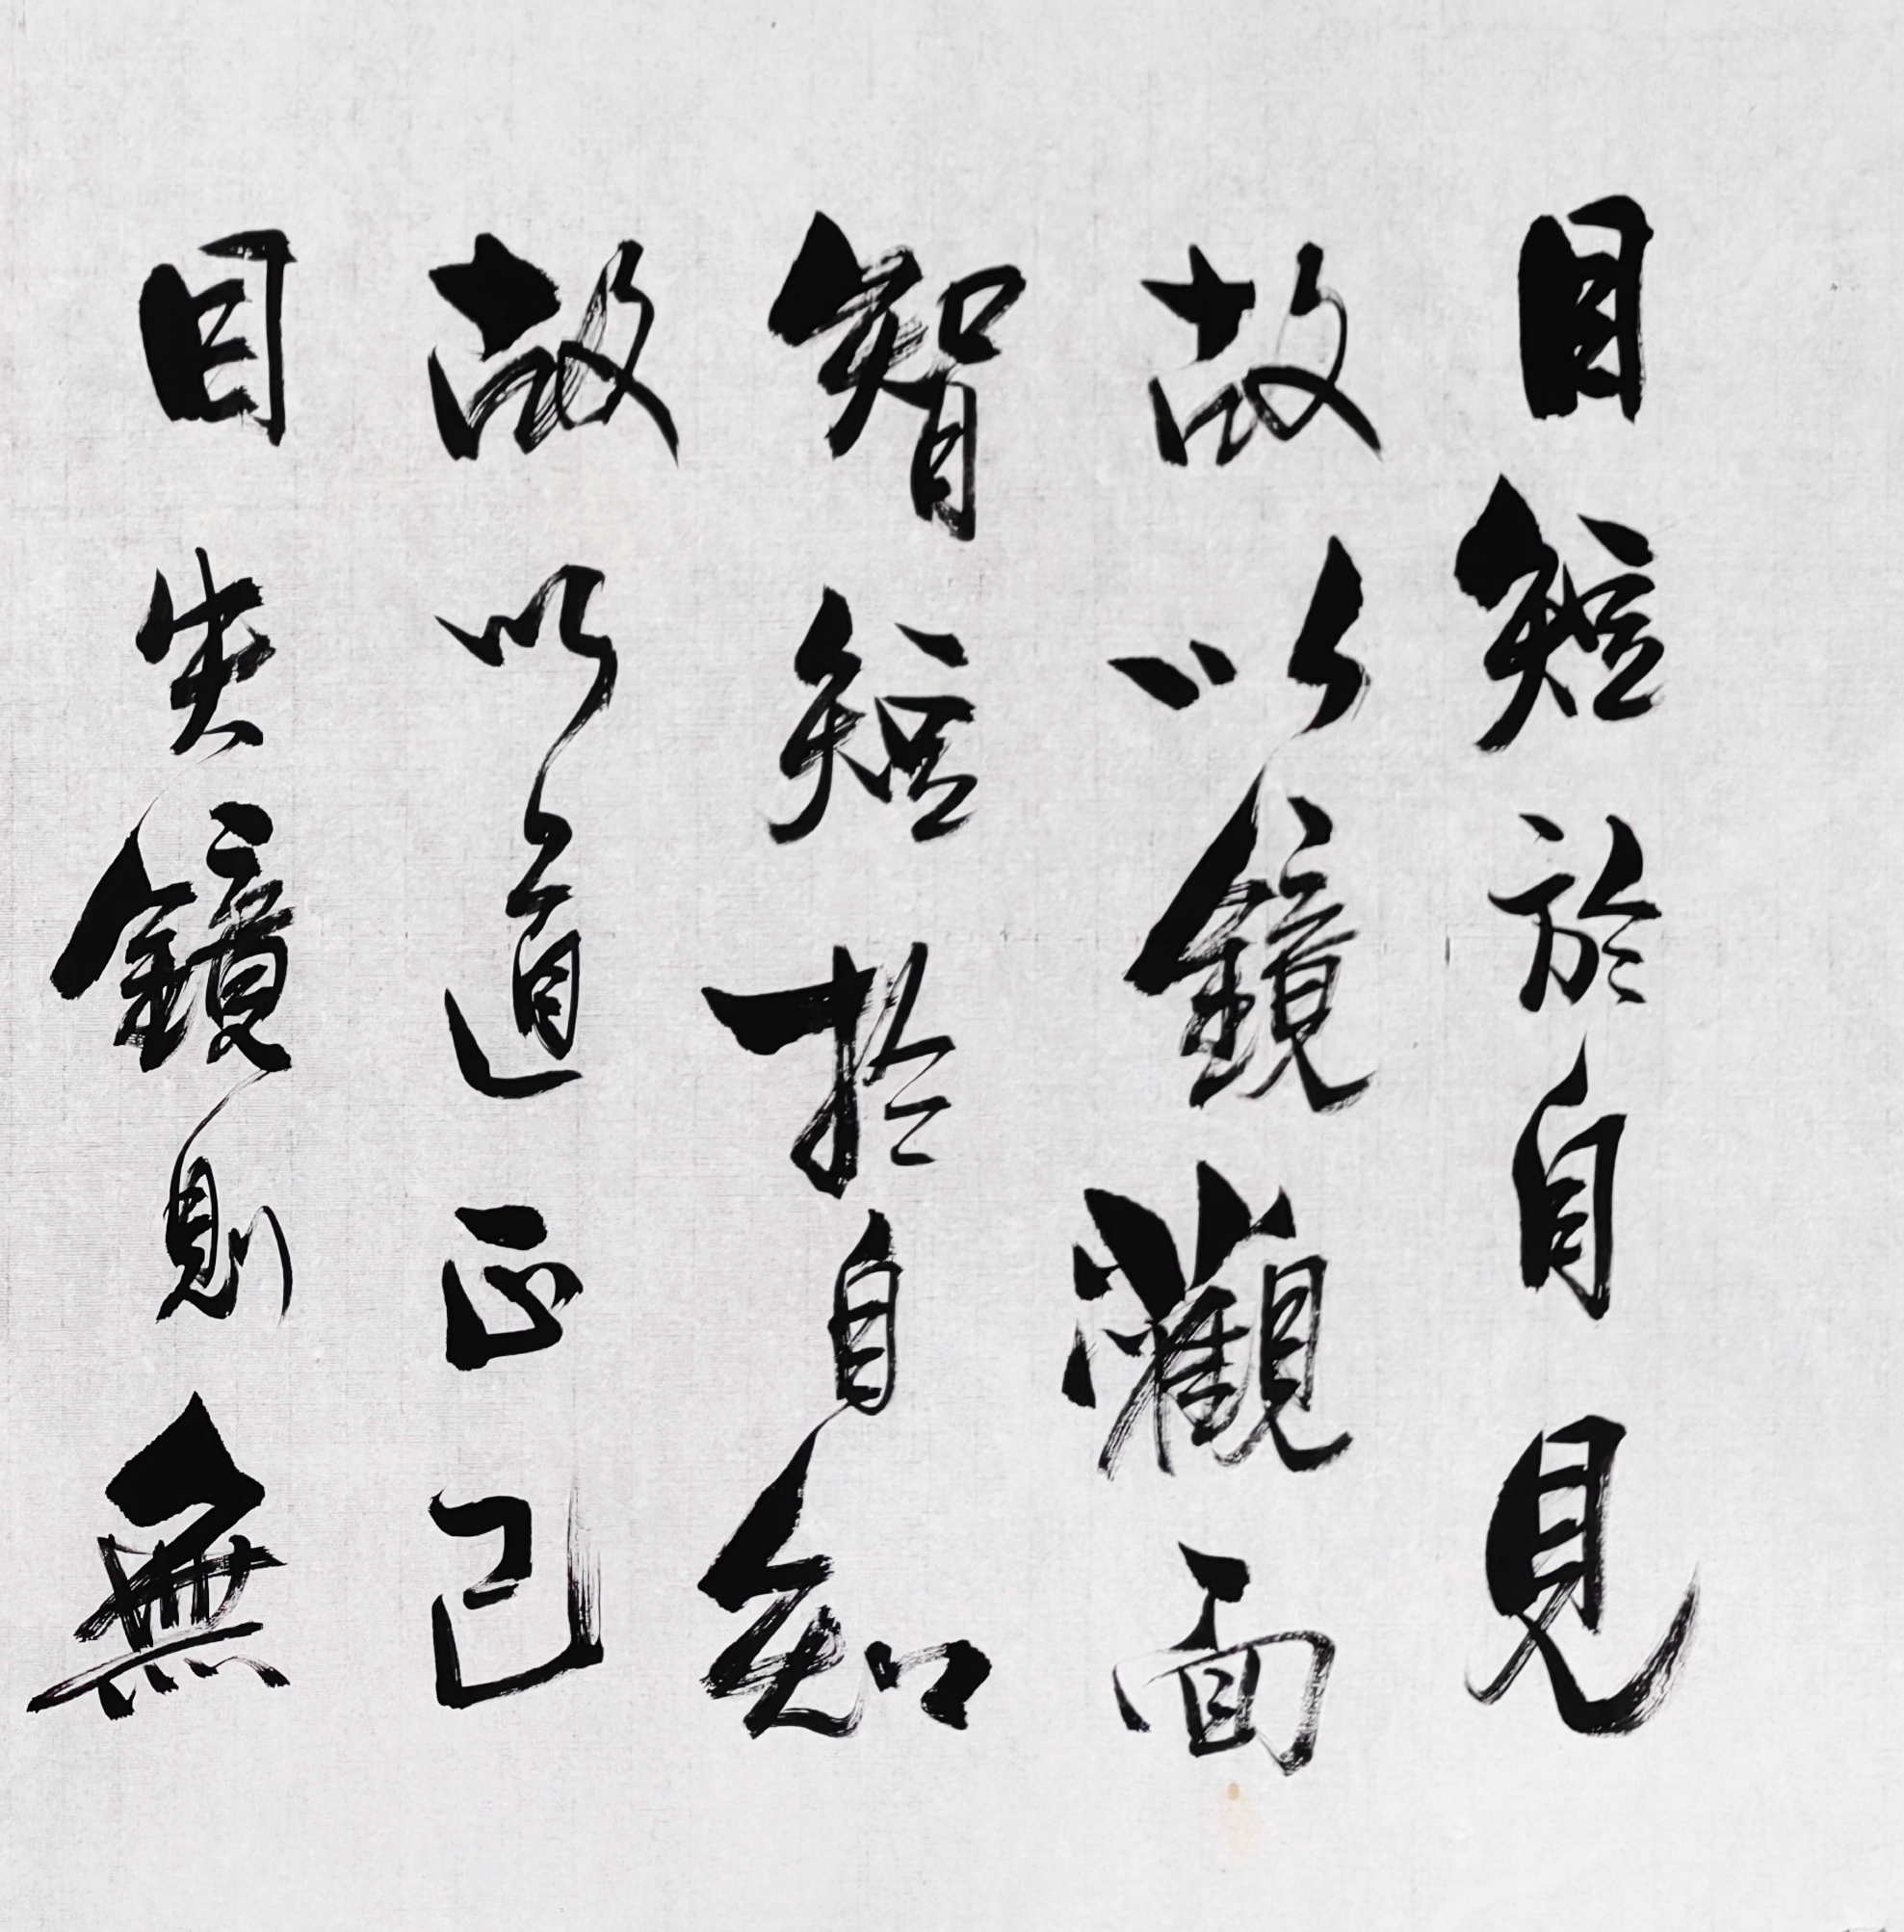 目短於自見
故以鏡觀面
智短於自知
故以道正己
目失鏡則無